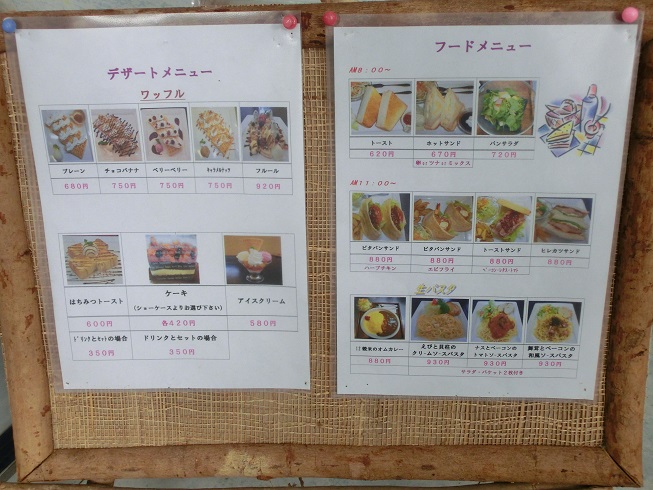 デザートメニュー
ワッフル
プレーン チョコバナナ ベリーベリー キャラメルナッツ フルール
680円 750円 750円 750円 920円
はちみつトースト ケーキ アイスクリーム
(ショーケースよりお選び下さい)
600円 各420円 580円
ドリンクとセットの場合 ドリンクとセットの場合
350円 350円
フードメニュー
AM8:00~
トースト ホットサンド パンサラダ
620円 670円 720円
卵orツナorミックス
AM11:00~
ピタパンサンド ピタパンサンド トーストサンド ヒレカツサンド
880円 880円 880円 880円
ハーブチキン エビフライ
生パスタ
えびと貝柱の ナスとベーコンの 舞茸とベーコンの
オムカレー クリームソースパスタ トマトソースパスタ 和風ソースパスタ
880円 930円 930円 930円
サラダ・バケット2枚付き